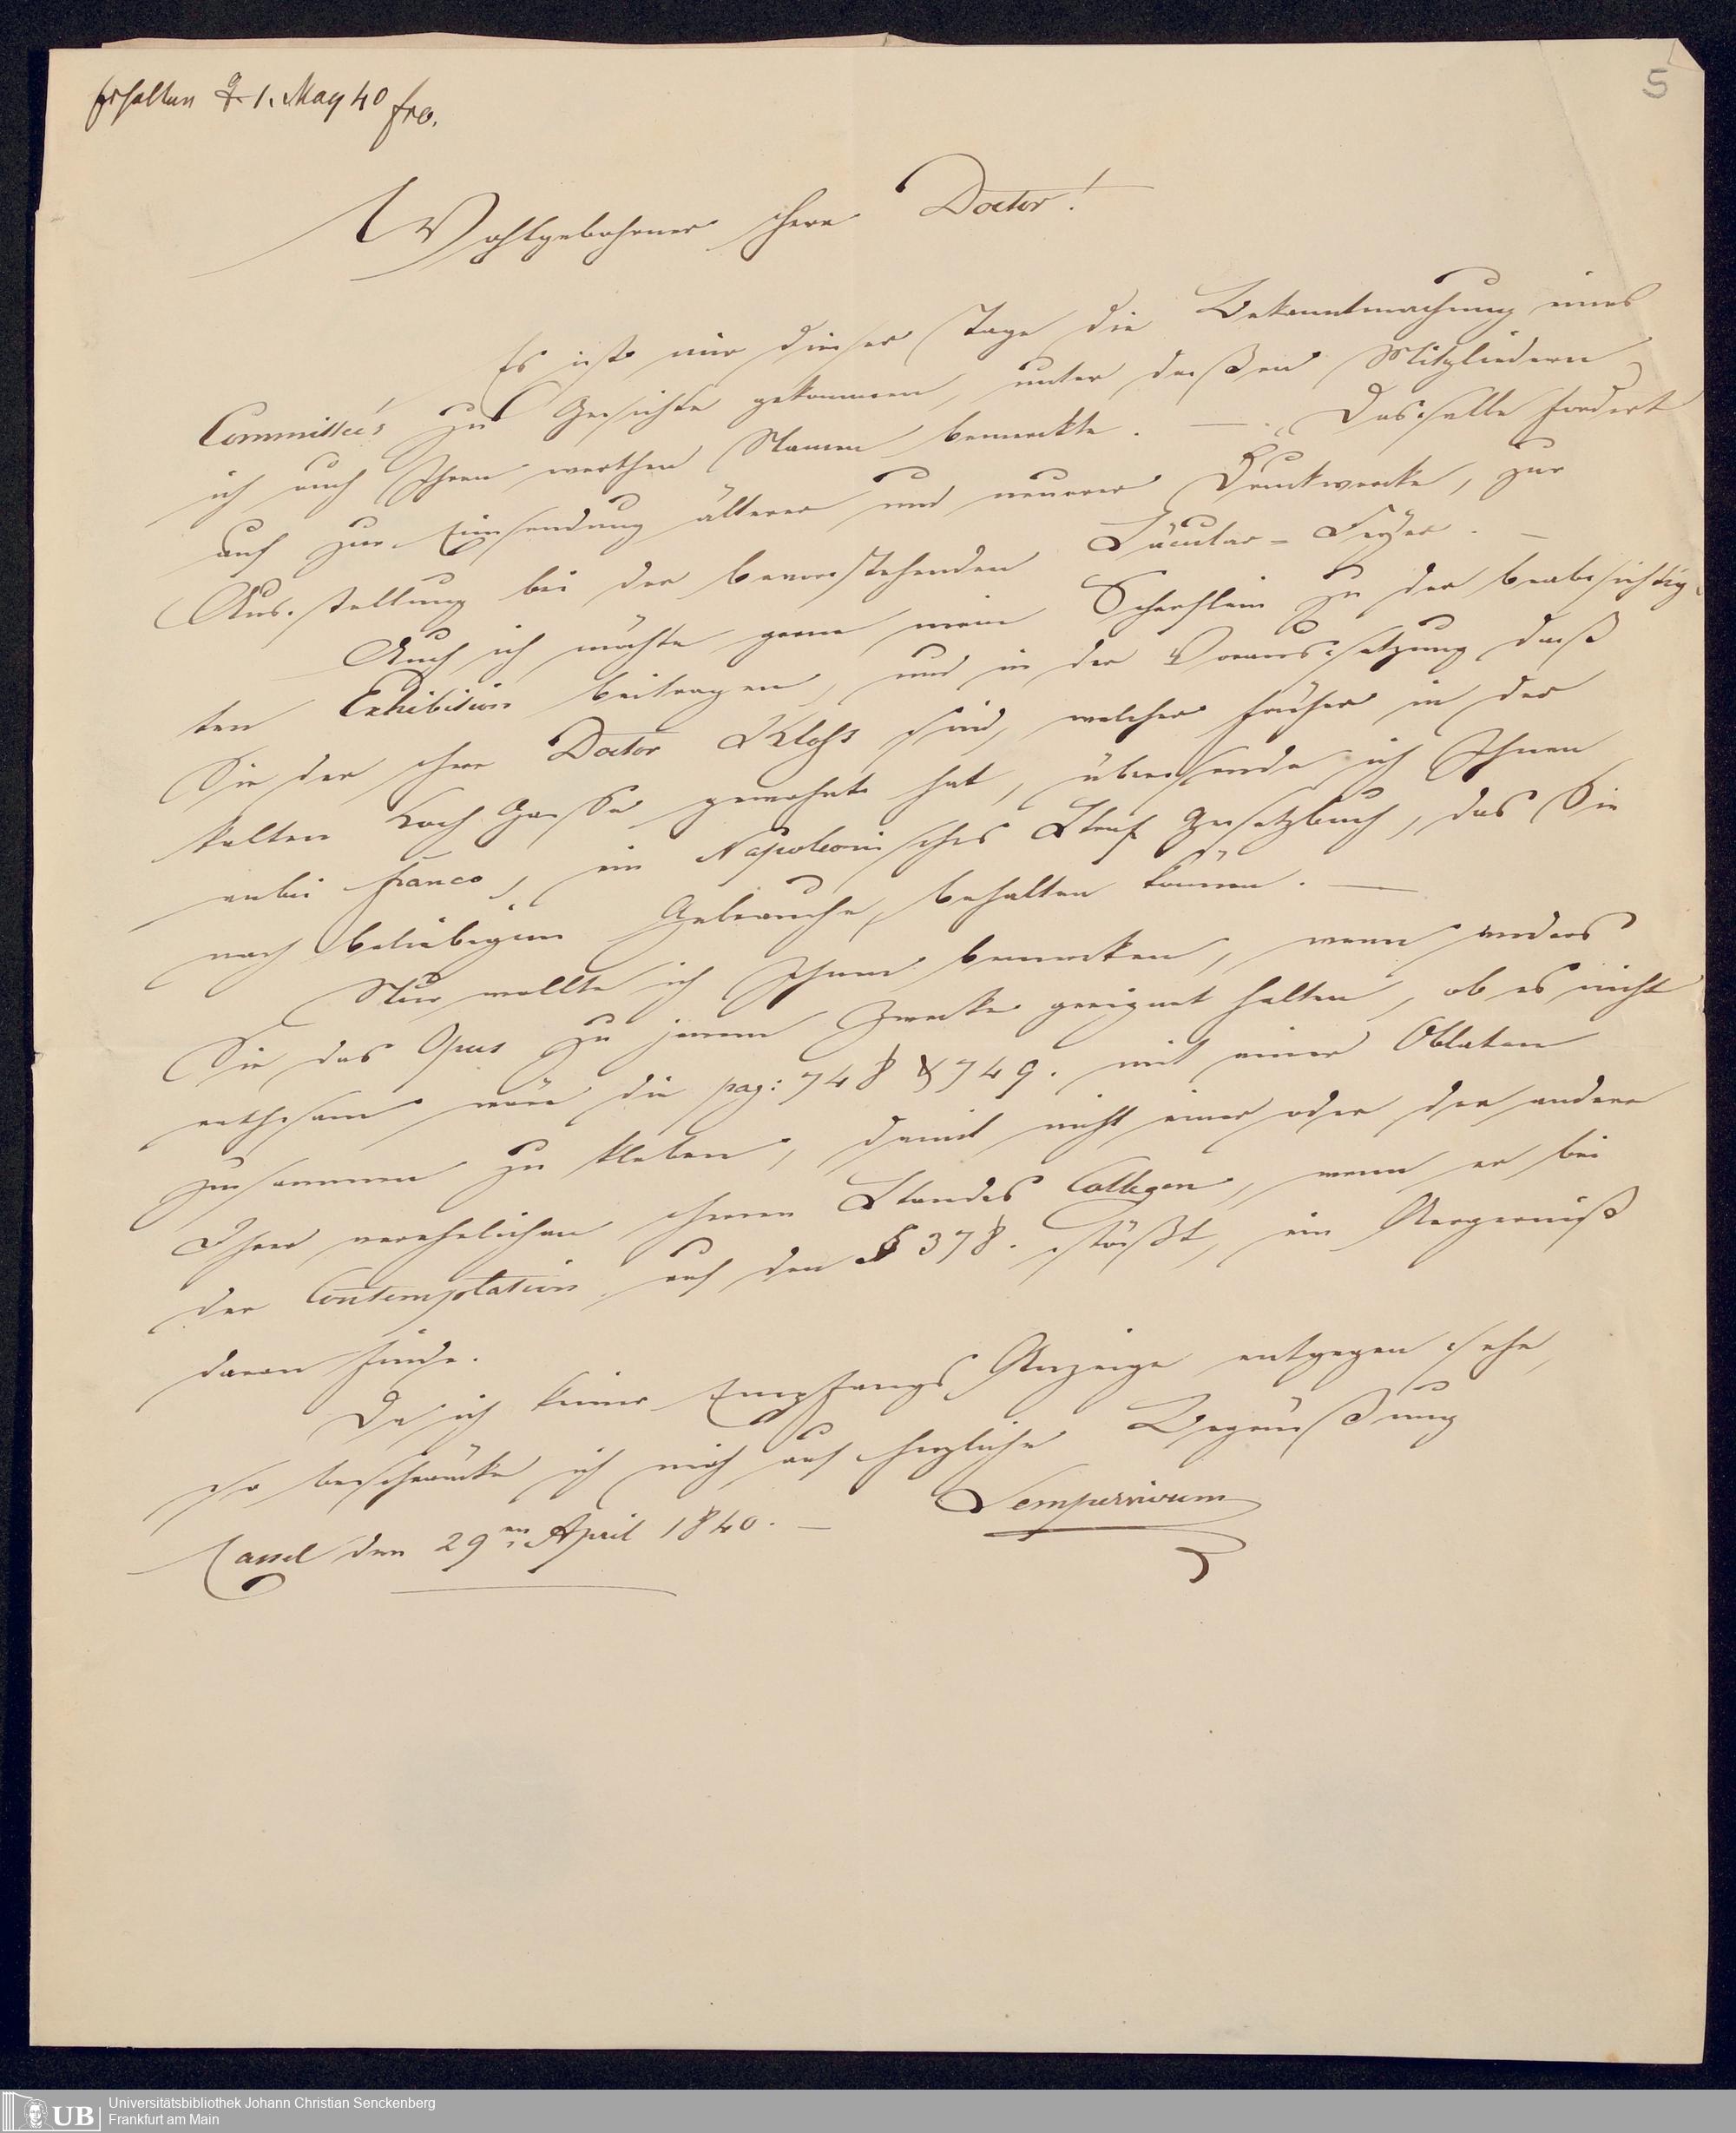 Erhalten d. 1. May 40 fro.
5
Wohlgebohrner Herr Doctor!
Es ist mir dieser Tage die Bekanntmachung eines
Committée's zu Gesichte gekommen, unter deßen Mitgliedern
ich auch Ihren werthen Namen bemerkte. — Dasselbe fordert
auf zur Einsendung älterer und neuerer Druckwercke, zur
Ausstellung bei der bevorstehenden Säcular-Feyer. —
Auch ich möchte gerne mein Scherflein zu der beabsichtig-
ten Exhibision beitragen, und in der Voraussetzung daß
Sie der Herr Doctor Kloss sind, welcher früher in der
kalten Loch Gasse gewohnt hat, übersende ich Ihnen
anbei franco, ein Napoleonisches Straf Gesetzbuch, das Sie
nach beliebigem Gebrauche, behalten können. —
Nur wollte ich Ihnen bemerken, wenn anders
Sie das Opus zu jenem Zwecke geeignet halten, ob es nicht
rathsam wäre die pag: 748 & 749. mit einer Oblaten
zusammen zu kleben, damit nicht einer oder der andere
Ihrer verehelichen Herren Standes Collegen, wenn er bei
der Contemplation auf den § 378. stößt, ein Aergerniß
daran finde.
Da ich keiner Empfangs Anzeige entgegen sehe,
so beschränke ich mich auf herzliche Begrüßung
Sempervivum
Cassel den 29ten April 1840. —
UB
Universitätsbibliothek Johann Christian Senckenberg
Frankfurt am Main